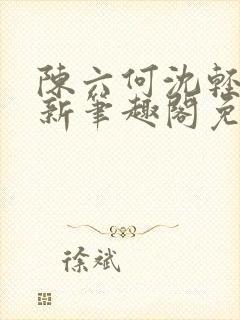 陳六何沈輕
新筆趣閣免
徐斌